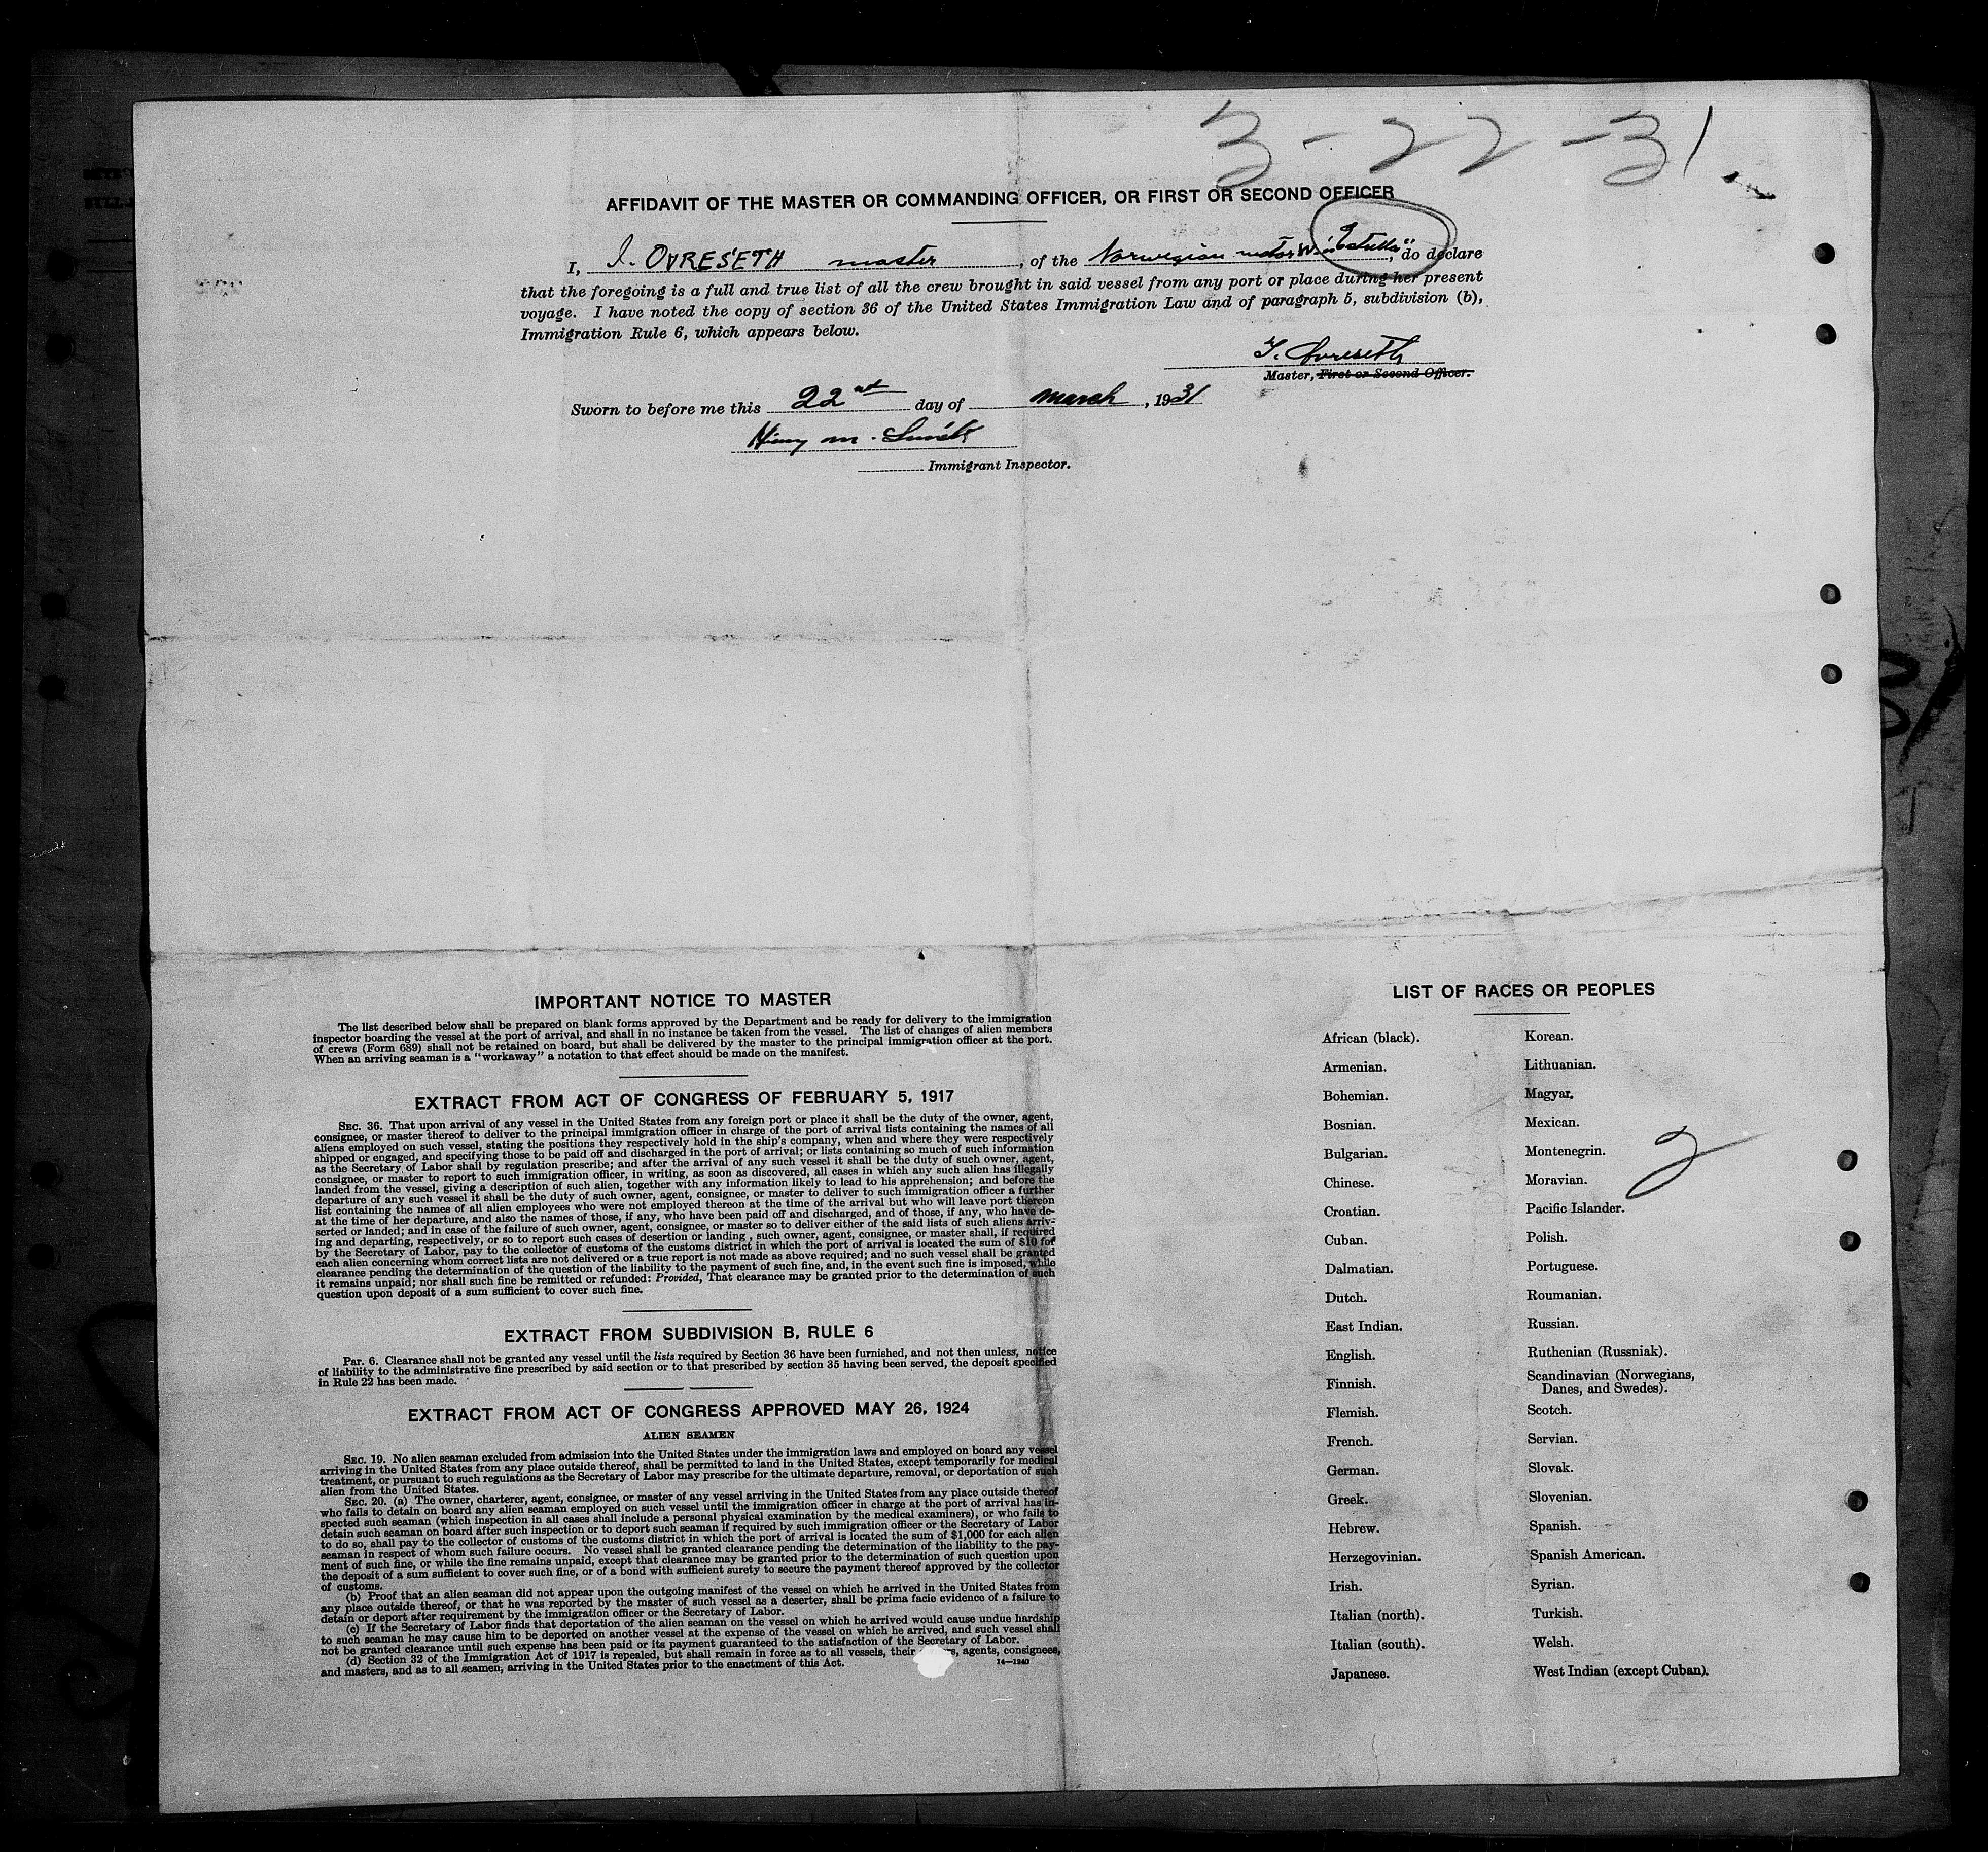 3-22-31
AFFIDAVIT OF THE MASTER OR COMMANDING OFFICER, OR FIRST OR SECOND OFFICER
I, I. OVRESETH master, of the Norwegian motor "Estrella", do declare
that the foregoing is a full and true list of all the crew brought in said vessel from any port or place during her present
voyage. I have noted the copy of section 36 of the United States Immigration Law and of paragraph 5, subdivision (b),
Immigration Rule 6, which appears below.
I. Ovreseth
Master, First or Second Officer.
Sworn to before me this 22nd day of March, 1931
Immigrant Inspector.
IMPORTANT NOTICE TO MASTER
The list described below shall be prepared on blank forms approved by the Department and be ready for delivery to the immigration
inspector boarding the vessel at the port of arrival, and shall in no instance be taken from the vessel. The list of changes of alien members
of crews (Form 689) shall not be retained on board, but shall be delivered by the master to the principal immigration officer at the port.
When an arriving seaman is a "workaway" a notation to that effect should be made on the manifest.
EXTRACT FROM ACT OF CONGRESS OF FEBRUARY 5, 1917
SEC. 36. That upon arrival of any vessel in the United States from any foreign port or place it shall be the duty of the owner, agent,
consignee, or master thereof to deliver to the principal immigration officer in charge of the port of arrival lists containing the names of all
aliens employed on such vessel, stating the positions they respectively hold in the ship's company, when and where they were respectively
shipped or engaged, and specifying those to be paid off and discharged in the port of arrival; or lists containing so much of such information
as the Secretary of Labor shall by regulation prescribe; and after the arrival of any such vessel it shall be the duty of such owner, agent,
consignee, or master to report to such immigration officer, in writing, as soon as discovered, all cases in which any such alien has illegally
landed from the vessel, giving a description of such alien, together with any information likely to lead to his apprehension; and before the
departure of any such vessel it shall be the duty of such owner, agent, consignee, or master to deliver to such immigration officer a further
list containing the names of all alien employees who were not employed thereon at the time of the arrival but who will leave port thereon
at the time of her departure, and also the names of those, if any, who have been paid off and discharged, and of those, if any, who have de-
serted or landed; and in case of the failure of such owner, agent, consignee, or master so to deliver either of the said lists of such aliens arriv-
ing and departing, respectively, or so to report such cases of desertion or landing , such owner, agent, consignee, or master shall, if required
by the Secretary of Labor, pay to the collector of customs of the customs district in which the port of arrival is located the sum of $10 for
each alien concerning whom correct lists are not delivered or a true report is not made as above required; and no such vessel shall be granted
clearance pending the determination of the question of the liability to the payment of such fine, and, in the event such fine is imposed, while
it remains unpaid; nor shall such fine be remitted or refunded: Provided, That clearance may be granted prior to the determination of such
question upon deposit of a sum sufficient to cover such fine.
EXTRACT FROM SUBDIVISION B, RULE 6
Par. 6. Clearance shall not be granted any vessel until the lists required by Section 36 have been furnished, and not then unless, notice
of liability to the administrative fine prescribed by said section or to that prescribed by section 35 having been served, the deposit specified
in Rule 22 has been made.
EXTRACT FROM ACT OF CONGRESS APPROVED MAY 26, 1924
ALIEN SEAMEN
SEC. 19. No alien seaman excluded from admission into the United States under the immigration laws and employed on board any vessel
arriving in the United States from any place outside thereof, shall be permitted to land in the United States, except temporarily for medical
treatment, or pursuant to such regulations as the Secretary of Labor may prescribe for the ultimate departure, removal, or deportation of such
alien from the United States.
SEC. 20. (a) The owner, charterer, agent, consignee, or master of any vessel arriving in the United States from any place outside thereof
who fails to detain on board any alien seaman employed on such vessel until the immigration officer in charge at the port of arrival has in-
spected such seaman (which inspection in all cases shall include a personal physical examination by the medical examiners), or who fails to
detain such seaman on board after such inspection or to deport such seaman if required by such immigration officer or the Secretary of Labor
to do so, shall pay to the collector of customs of the customs district in which the port of arrival is located the sum of $1,000 for each alien
seaman in respect of whom such failure occurs. No vessel shall be granted clearance pending the determination of the liability to the pay-
ment of such fine, or while the fine remains unpaid, except that clearance may be granted prior to the determination of such question upon
the deposit of a sum sufficient to cover such fine, or of a bond with sufficient surety to secure the payment thereof approved by the collector
of customs.
(b) Proof that an alien seaman did not appear upon the outgoing manifest of the vessel on which he arrived in the United States from
any place outside thereof, or that he was reported by the master of such vessel as a deserter, shall be prima facie evidence of a failure to
detain or deport after requirement by the immigration officer or the Secretary of Labor.
(c) If the Secretary of Labor finds that deportation of the alien seaman on the vessel on which he arrived would cause undue hardship
to such seaman he may cause him to be deported on another vessel at the expense of the vessel on which he arrived, and such vessel shall
not be granted clearance until such expense has been paid or its payment guaranteed to the satisfaction of the Secretary of Labor.
(d) Section 32 of the Immigration Act of 1917 is repealed, but shall remain in force as to all vessels, their agents, consignees,
and masters, and as to all seamen, arriving in the United States prior to the enactment of this Act.
14-1240
LIST OF RACES OR PEOPLES
African (black).
Armenian.
Bohemian.
Bosnian.
Bulgarian.
Chinese.
Croatian.
Cuban.
Dalmatian.
Dutch.
East Indian.
English.
Finnish.
Flemish.
French.
German.
Greek.
Hebrew.
Herzegovinian.
Irish.
Italian (north).
Italian (south).
Japanese.
Korean.
Lithuanian.
Magyar.
Mexican.
Montenegrin.
Moravian.
Pacific Islander.
Polish.
Portuguese.
Roumanian.
Russian.
Ruthenian (Russniak).
Scandinavian (Norwegians,
Danes, and Swedes).
Scotch.
Servian.
Slovak.
Slovenian.
Spanish.
Spanish American.
Syrian.
Turkish.
Welsh.
West Indian (except Cuban).
2